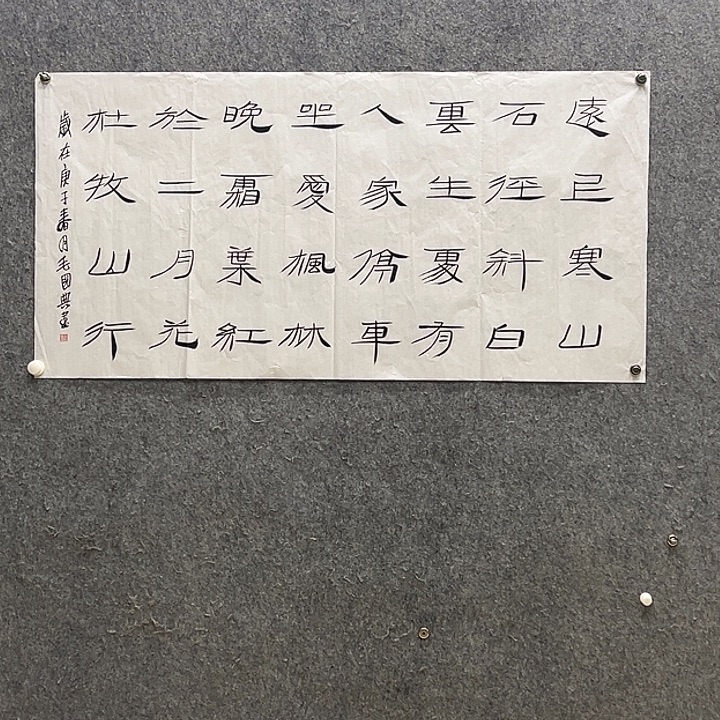 遠上寒山
石徑斜白
雲生處有
人家停車
坐愛楓林
晚霜葉紅
於二月花
杜牧山行
歲在庚子春月毛國興書